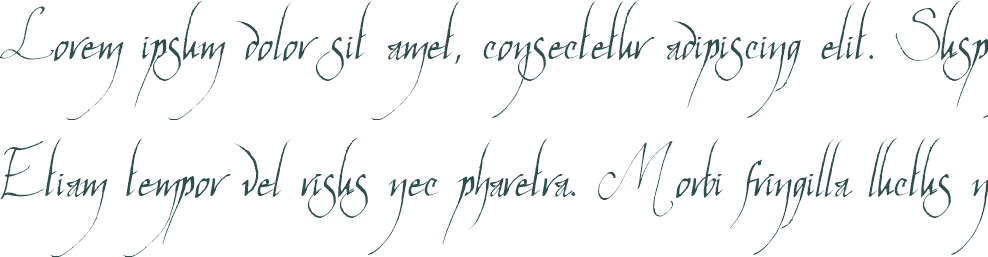 Lorem ipsum dolor sit amet, consectetur adipiscing elit. Susp
Etiam tempor vel risus nec pharetra. Morbi fringilla luctus n